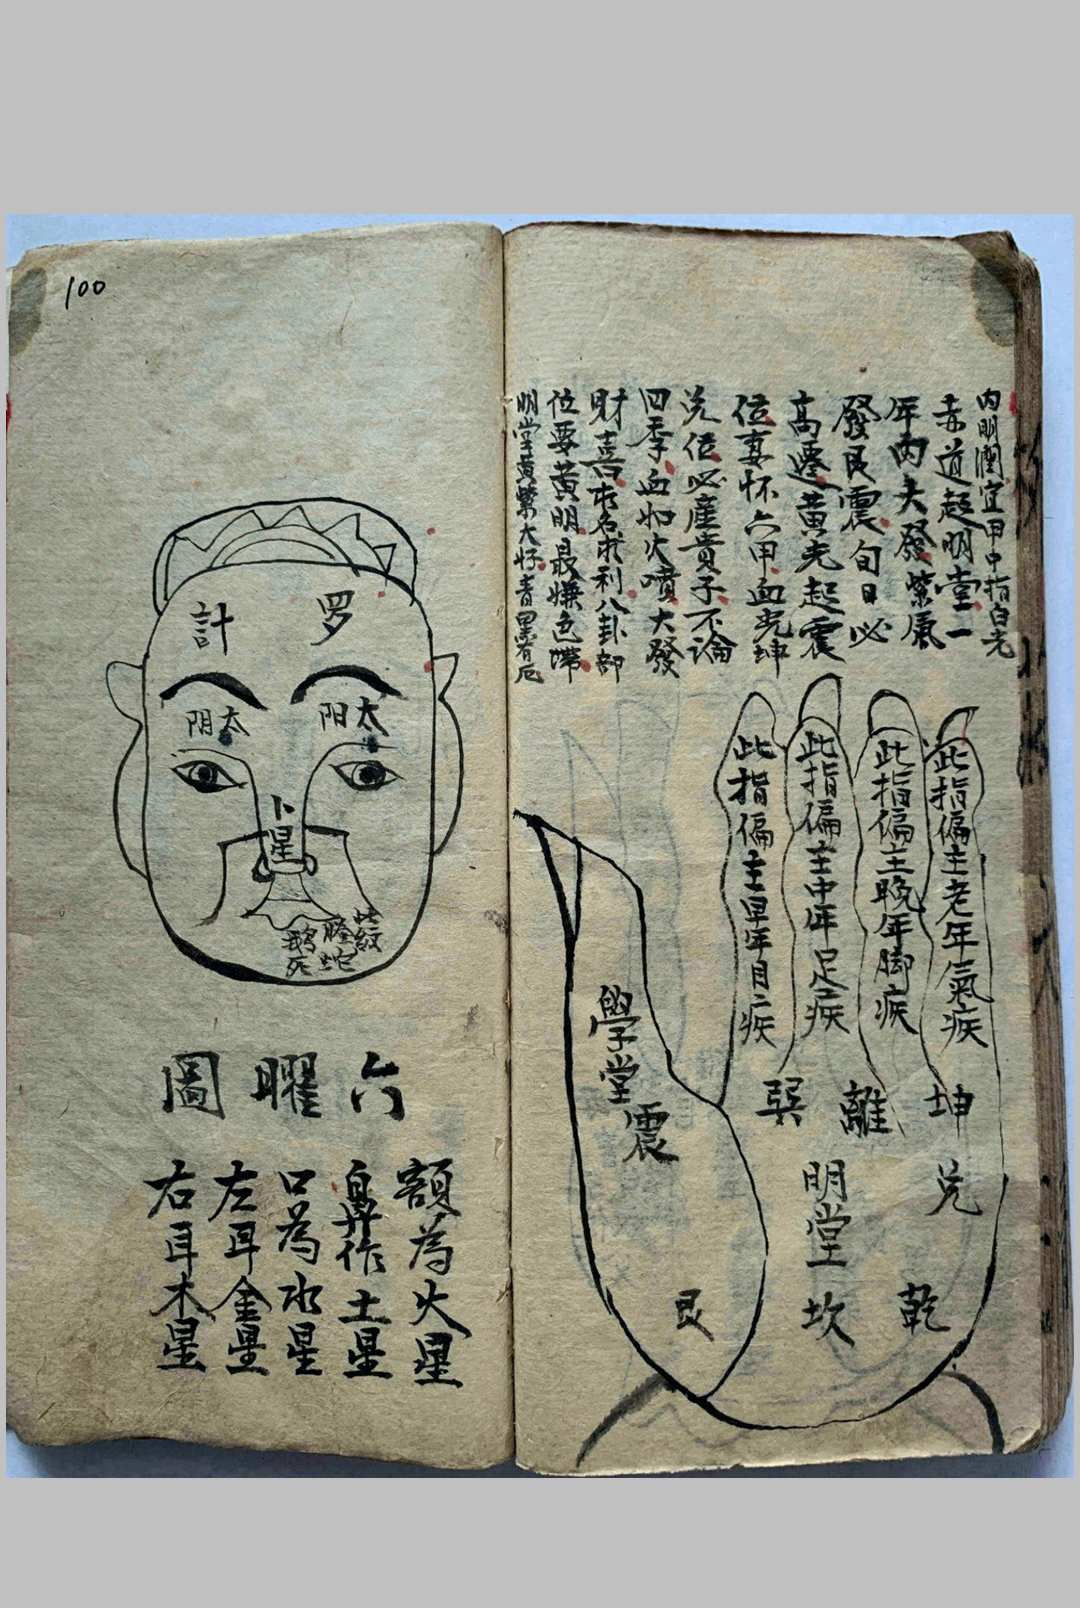 內明潤宜甲中指白光
赤道起明堂一
年內大發紫氣
發艮震旬日必
高遷黃光起震
位妻怀六甲血光坤
兌位必産貴子不論
四季血如火噴大發
財喜求名求利八卦部
位要黃明最嫌色滯
明堂黃紫大好青黑有厄
此指偏主老年氣疾
此指偏主晚年脚疾
此指偏主中年足疾
此指偏主早年目疾
坤
離
巽
兌
明堂
學堂
震
乾
坎
艮
100
罗
計
太阳
太阴
卜星
此紋
螣蛇
死
六曜圖
額為火星
鼻作土星
口為水星
左耳金星
右耳木星